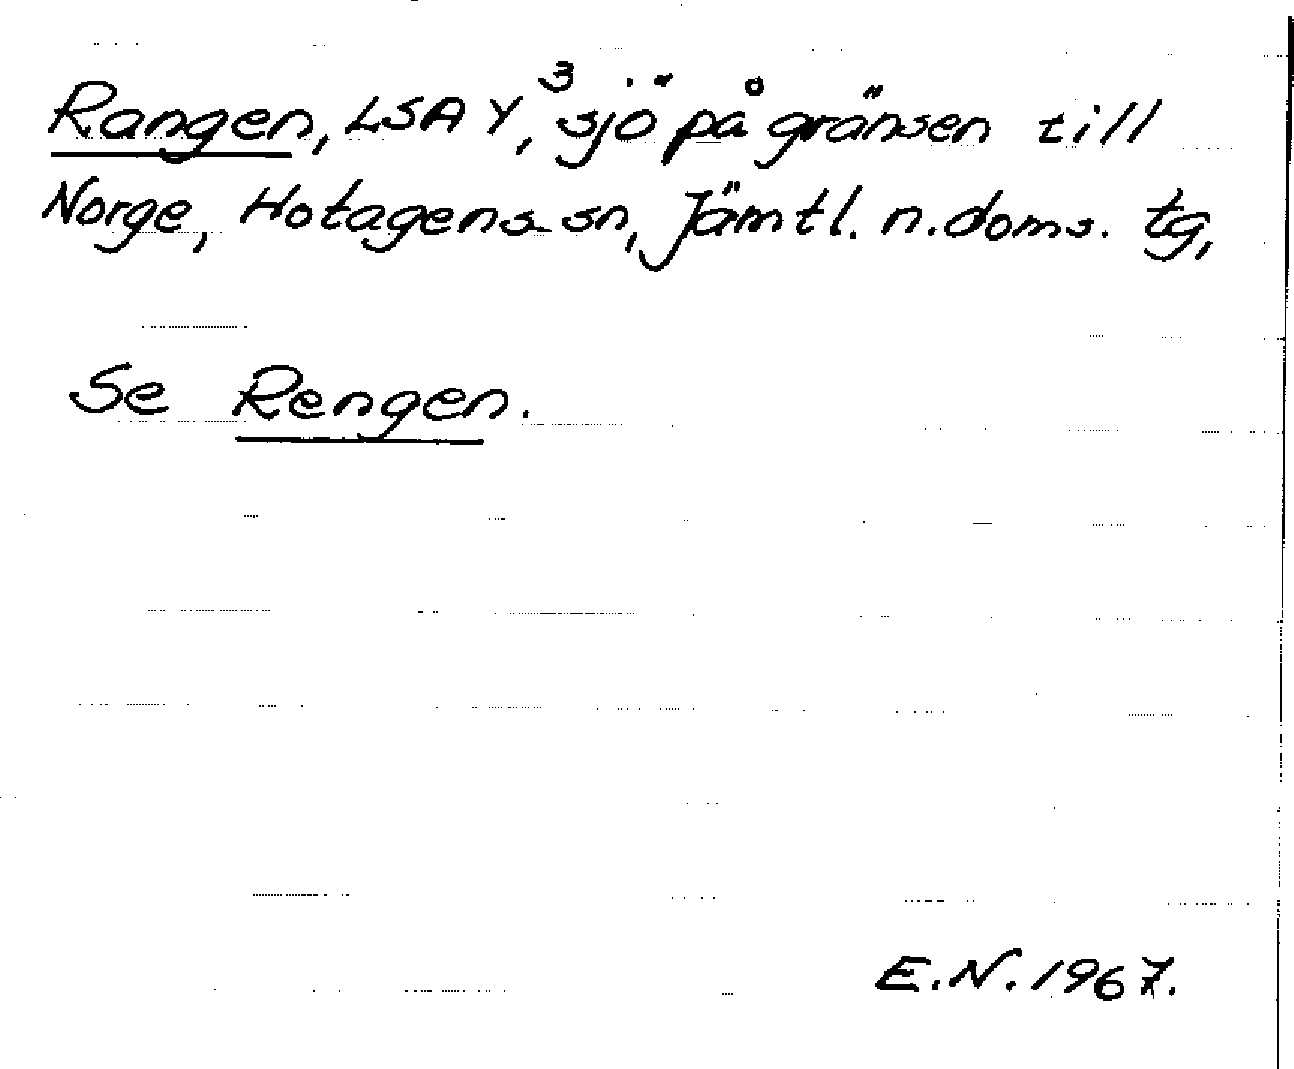 Rangen, LSA Y,³ sjö på gränsen till
Norge, Hotagens sn, Jämtl. n. doms. tg,
Se Rengen.
E.N. 1967.